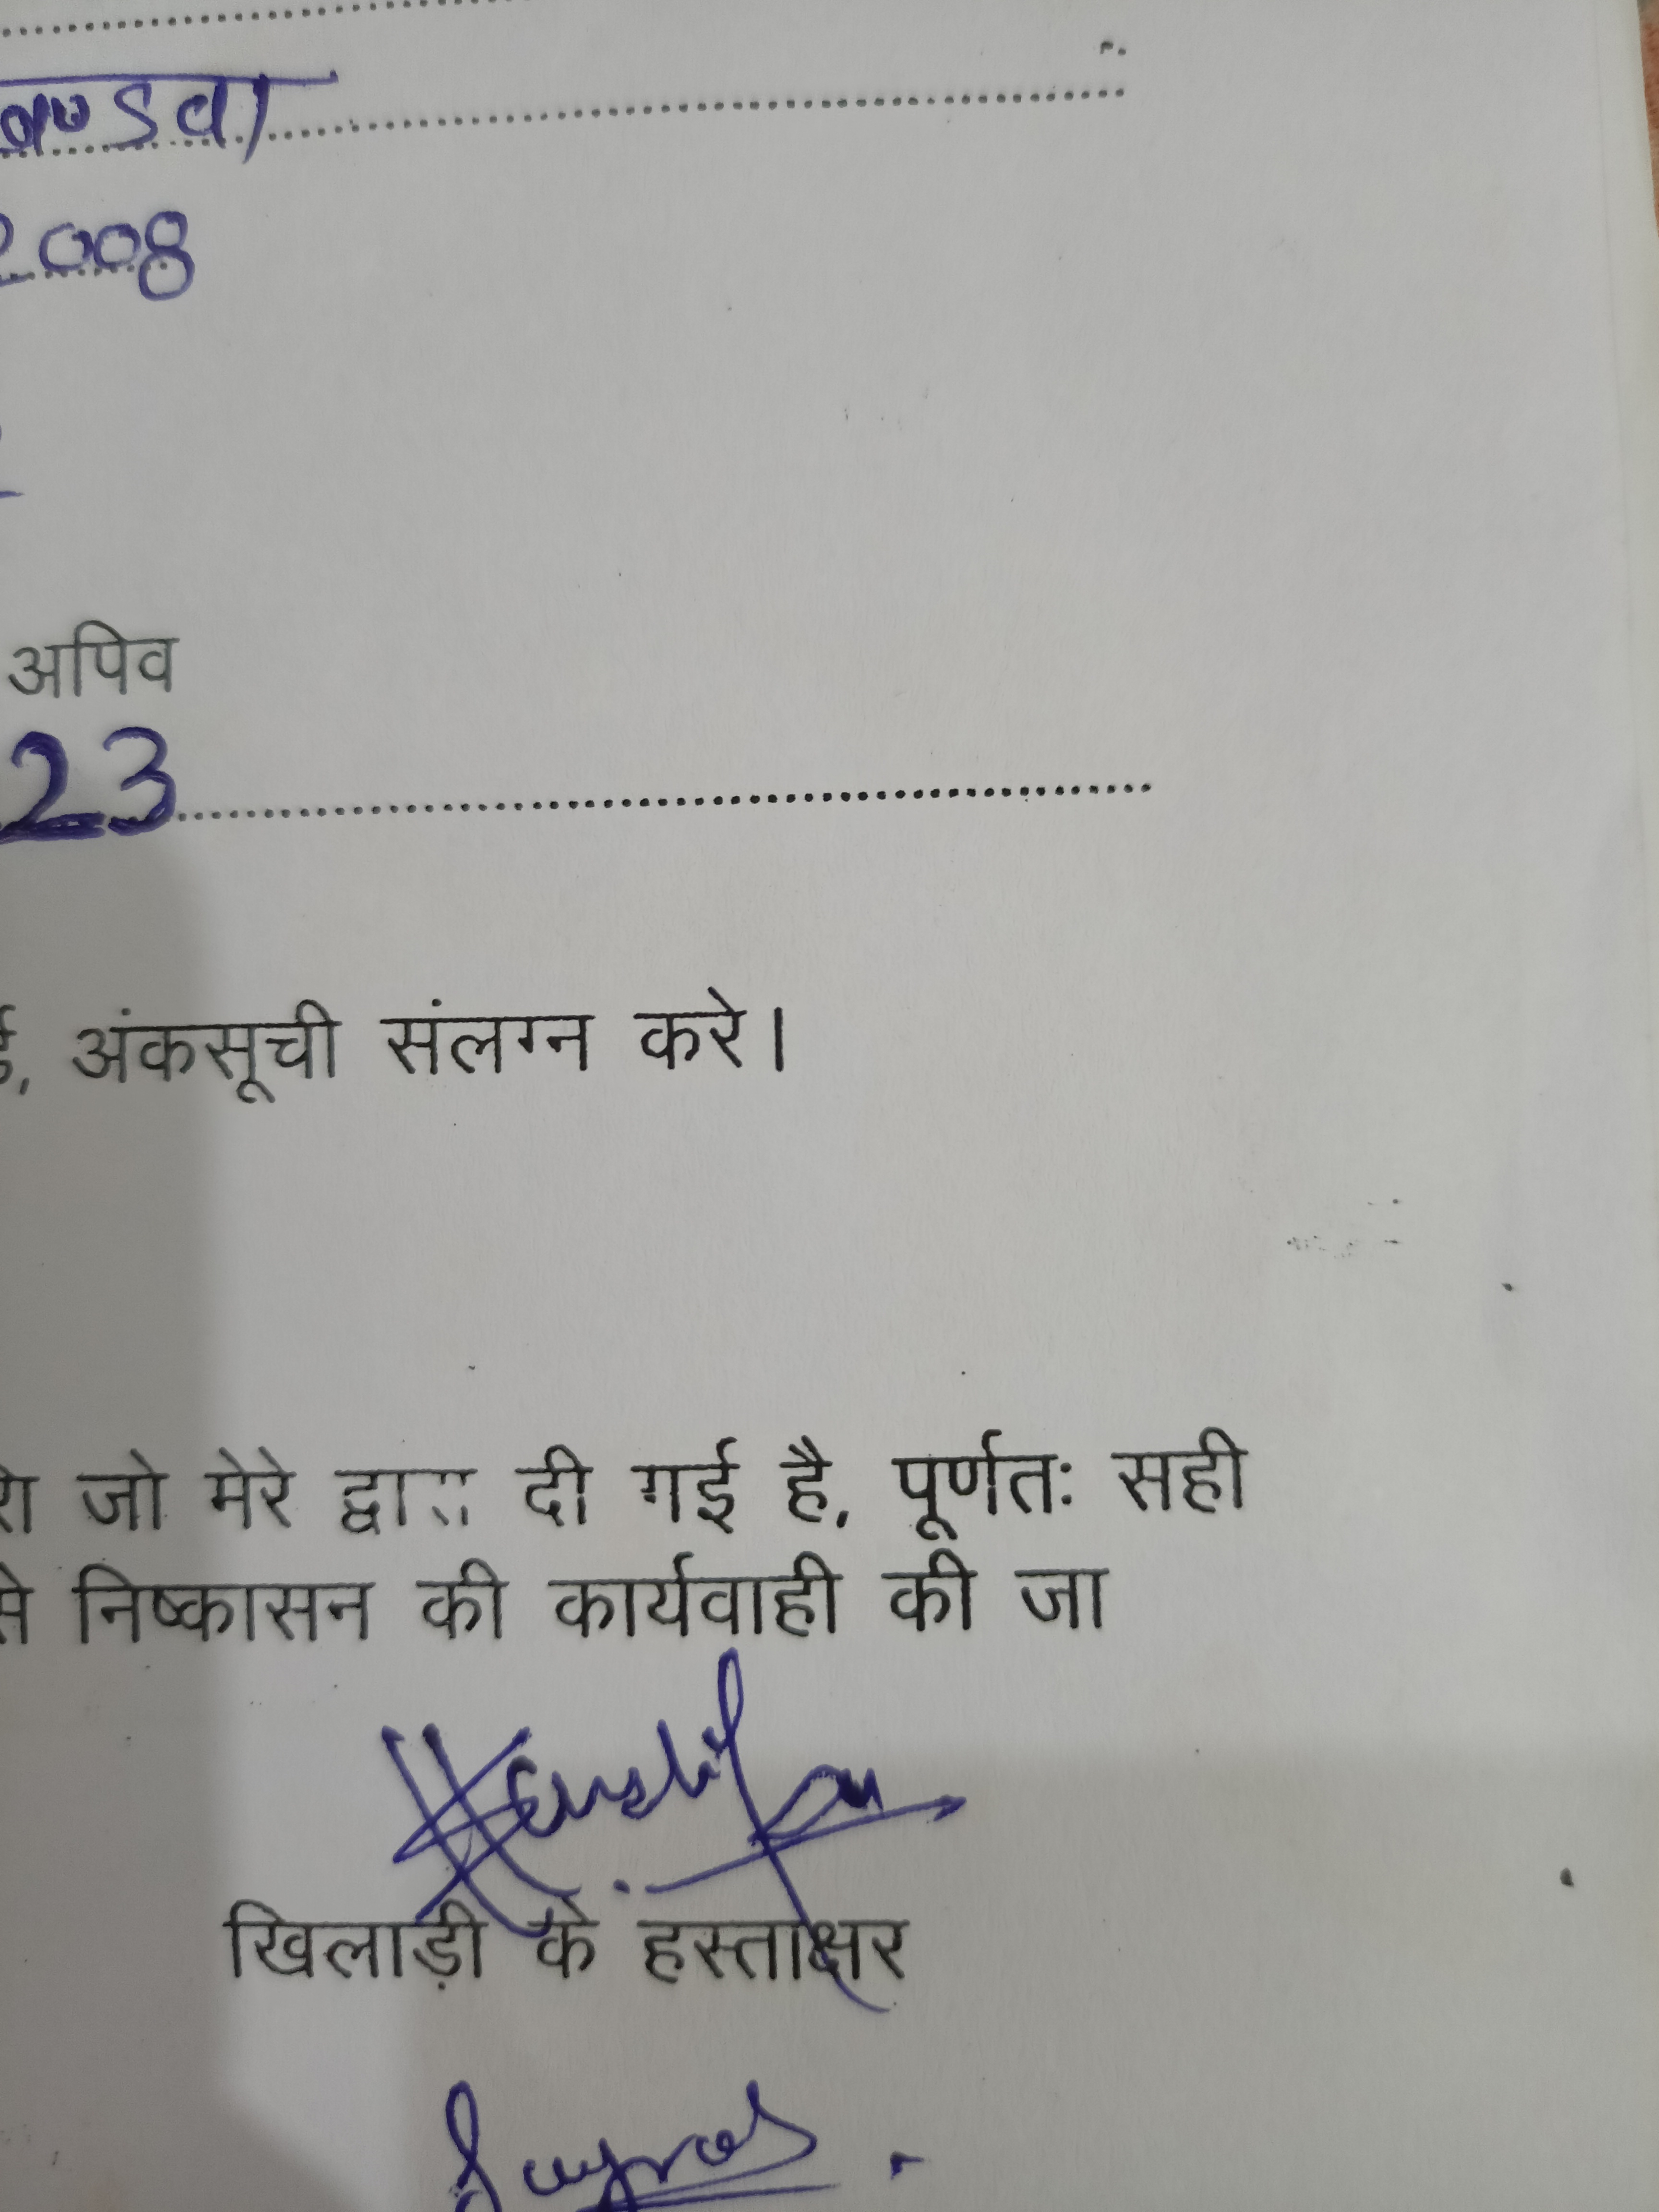 ण्डवा
2008
अपिव
23
, अंकसूची संलग्न करे।
जो मेरे द्वारा दी गई है, पूर्णतः सही
से निष्कासन की कार्यवाही की जा
खिलाड़ी के हस्ताक्षर